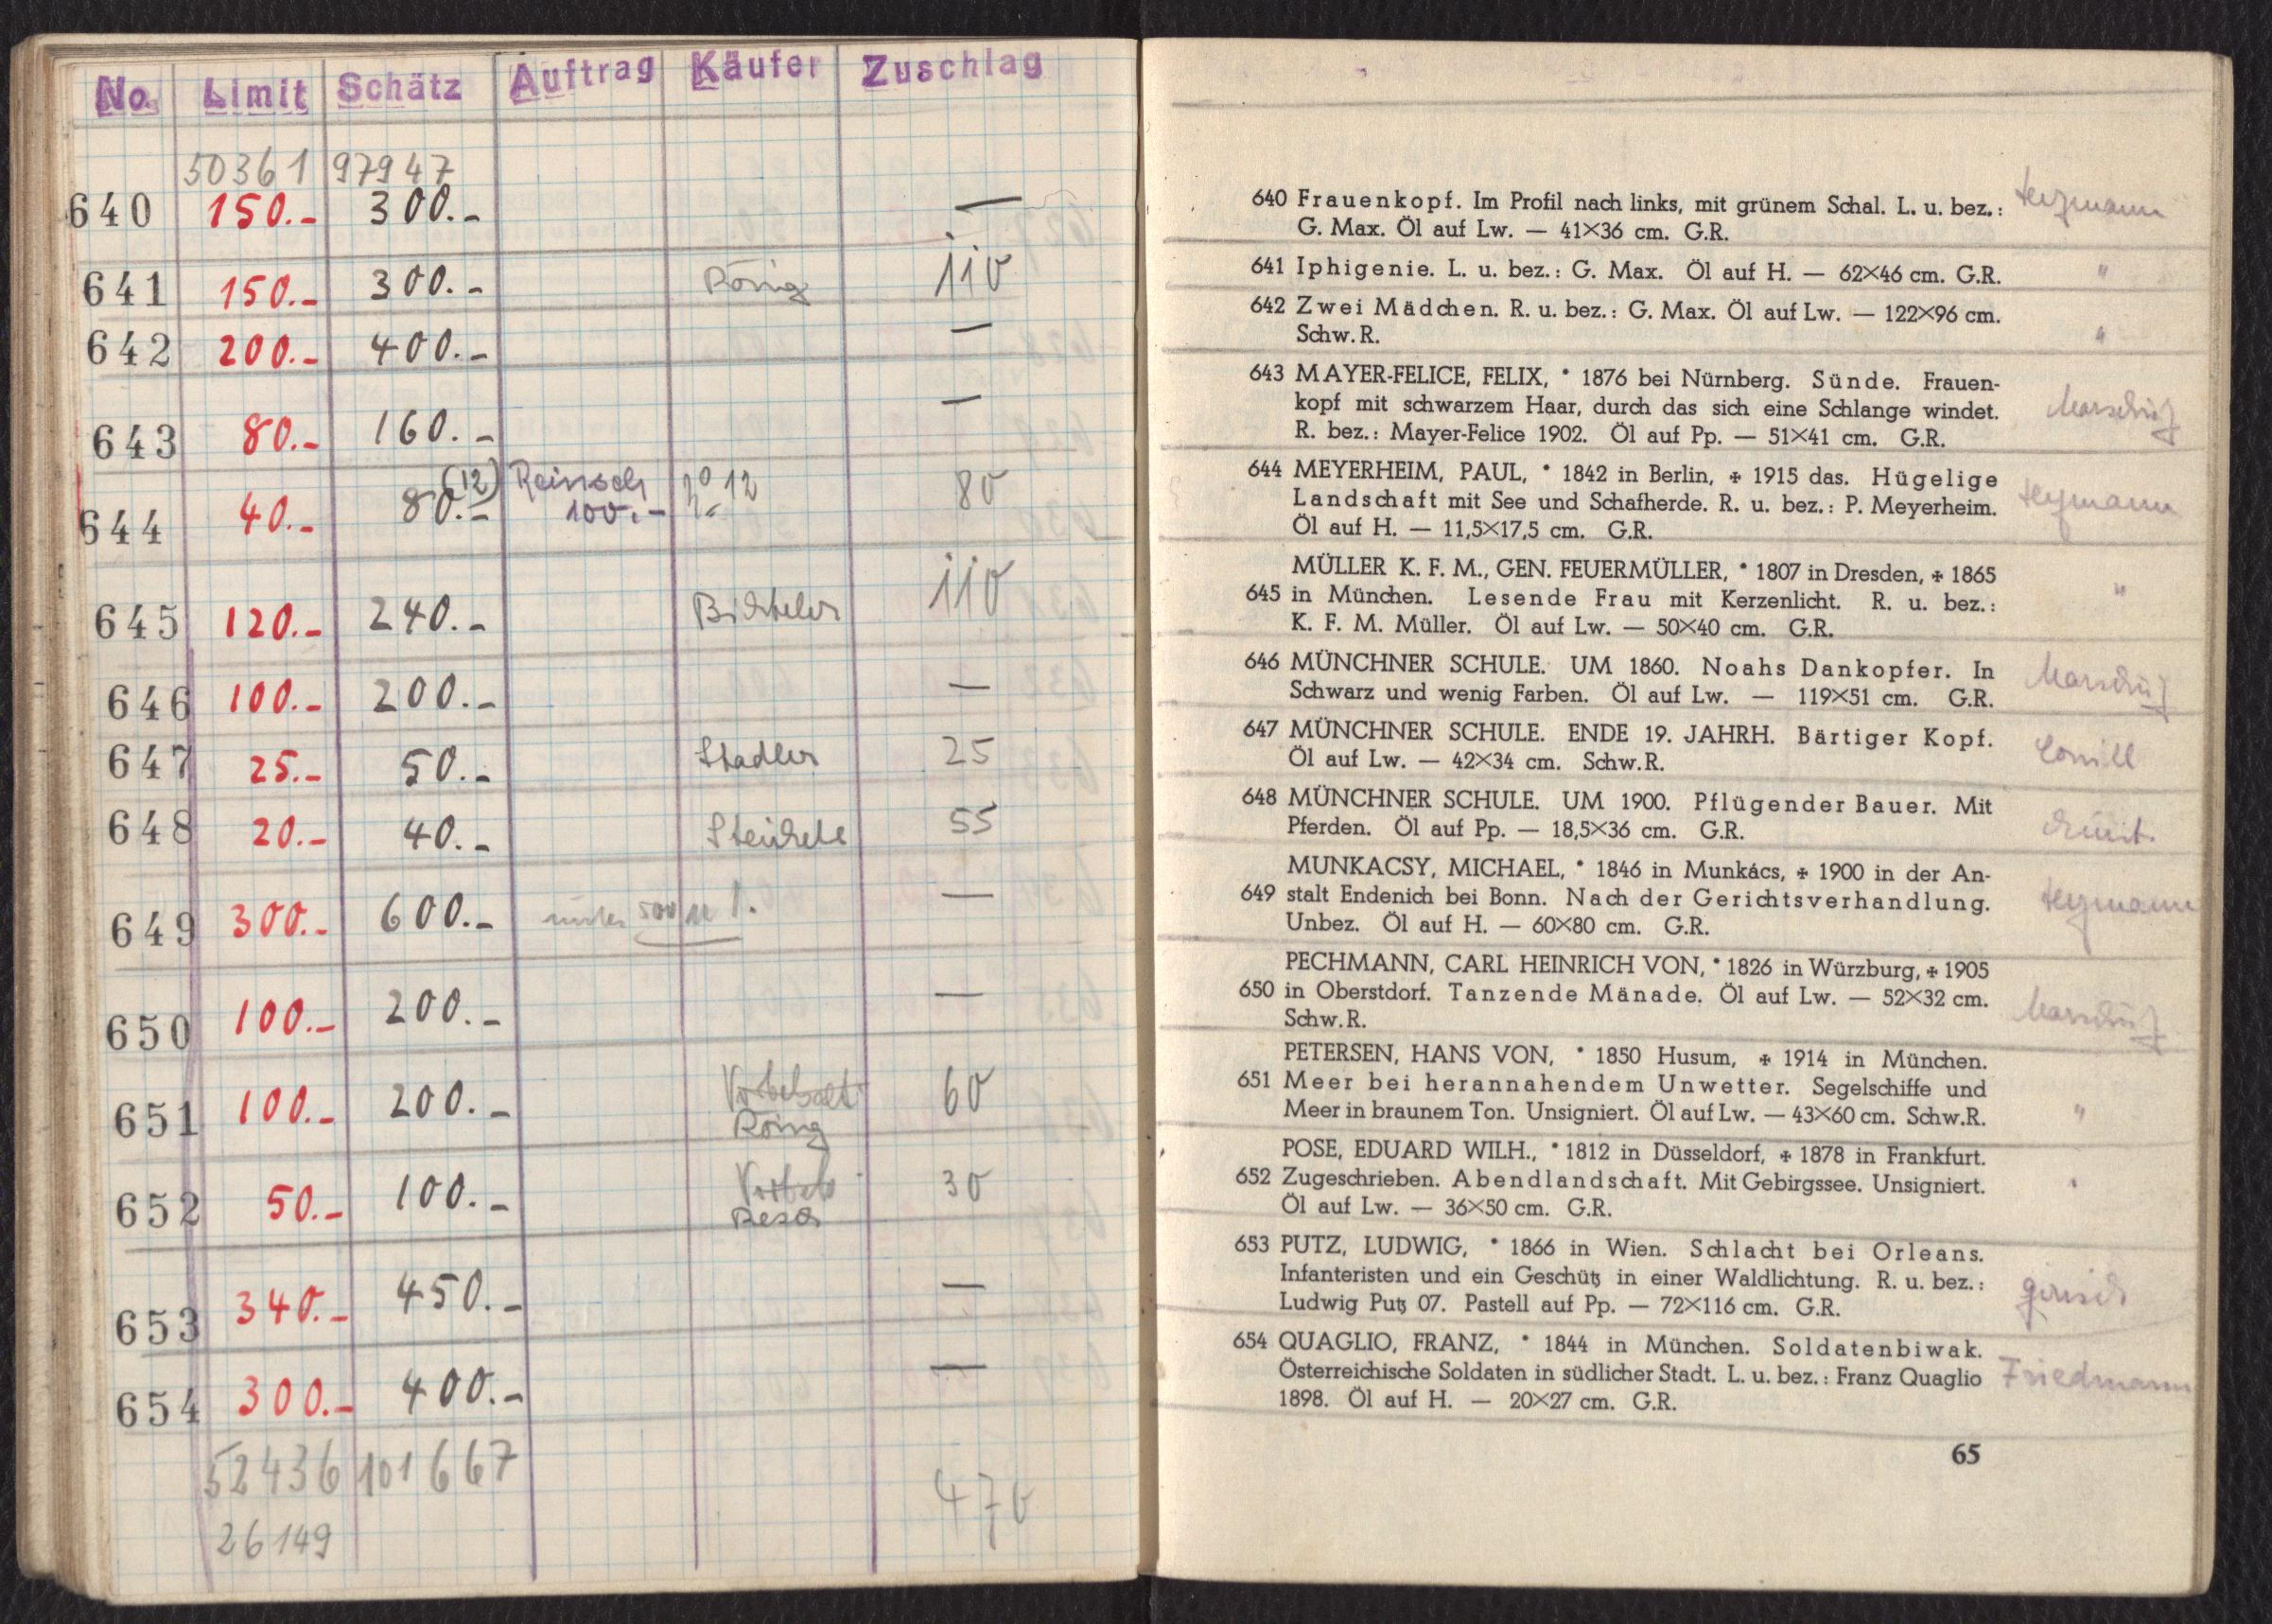 No. Limit Schätz Auftrag Käufer Zuschlag
50361 97947
640 150.- 300.- —
641 150.- 300.- König 110
642 200.- 400.- —
643 80.- 160.- —
644 40.- 80.- (12) Reinsch 100.- No 12 80
645 120.- 240.- 110
646 100.- 200.- —
647 25.- 50.- Stadler 25
648 20.- 40.- 55
649 300.- 600.- unter 500 —
650 100.- 200.- —
651 100.- 200.- Vorbehalt 60
König
652 50.- 100.- Vorbeh 30
653 340.- 450.- —
654 300.- 400.- —
52436 101667 470
26149
640 Frauenkopf. Im Profil nach links, mit grünem Schal. L. u. bez.:
G. Max. Öl auf Lw. — 41×36 cm. G.R.
641 Iphigenie. L. u. bez.: G. Max. Öl auf H. — 62×46 cm. G.R. "
642 Zwei Mädchen. R. u. bez.: G. Max. Öl auf Lw. — 122×96 cm.
Schw. R. "
643 MAYER-FELICE, FELIX, * 1876 bei Nürnberg. Sünde. Frauen-
kopf mit schwarzem Haar, durch das sich eine Schlange windet.
R. bez.: Mayer-Felice 1902. Öl auf Pp. — 51×41 cm. G.R.
644 MEYERHEIM, PAUL, * 1842 in Berlin, ✠ 1915 das. Hügelige
Landschaft mit See und Schafherde. R. u. bez.: P. Meyerheim.
Öl auf H. — 11,5×17,5 cm. G.R.
MÜLLER K. F. M., GEN. FEUERMÜLLER, * 1807 in Dresden, ✠ 1865
645 in München. Lesende Frau mit Kerzenlicht. R. u. bez.: "
K. F. M. Müller. Öl auf Lw. — 50×40 cm. G.R.
646 MÜNCHNER SCHULE. UM 1860. Noahs Dankopfer. In
Schwarz und wenig Farben. Öl auf Lw. — 119×51 cm. G.R.
647 MÜNCHNER SCHULE. ENDE 19. JAHRH. Bärtiger Kopf.
Öl auf Lw. — 42×34 cm. Schw. R.
648 MÜNCHNER SCHULE. UM 1900. Pflügender Bauer. Mit
Pferden. Öl auf Pp. — 18,5×36 cm. G.R.
MUNKACSY, MICHAEL, * 1846 in Munkács, ✠ 1900 in der An-
649 stalt Endenich bei Bonn. Nach der Gerichtsverhandlung.
Unbez. Öl auf H. — 60×80 cm. G.R.
PECHMANN, CARL HEINRICH VON, * 1826 in Würzburg, ✠ 1905
650 in Oberstdorf. Tanzende Mänade. Öl auf Lw. — 52×32 cm.
Schw. R.
PETERSEN, HANS VON, * 1850 Husum, ✠ 1914 in München.
651 Meer bei herannahendem Unwetter. Segelschiffe und
Meer in braunem Ton. Unsigniert. Öl auf Lw. — 43×60 cm. Schw. R. "
POSE, EDUARD WILH., * 1812 in Düsseldorf, ✠ 1878 in Frankfurt.
652 Zugeschrieben. Abendlandschaft. Mit Gebirgssee. Unsigniert. "
Öl auf Lw. — 36×50 cm. G.R.
653 PUTZ, LUDWIG, * 1866 in Wien. Schlacht bei Orleans.
Infanteristen und ein Geschütz in einer Waldlichtung. R. u. bez.:
Ludwig Putz 07. Pastell auf Pp. — 72×116 cm. G.R.
654 QUAGLIO, FRANZ, * 1844 in München. Soldatenbiwak.
Österreichische Soldaten in südlicher Stadt. L. u. bez.: Franz Quaglio Friedmann
1898. Öl auf H. — 20×27 cm. G.R.
65